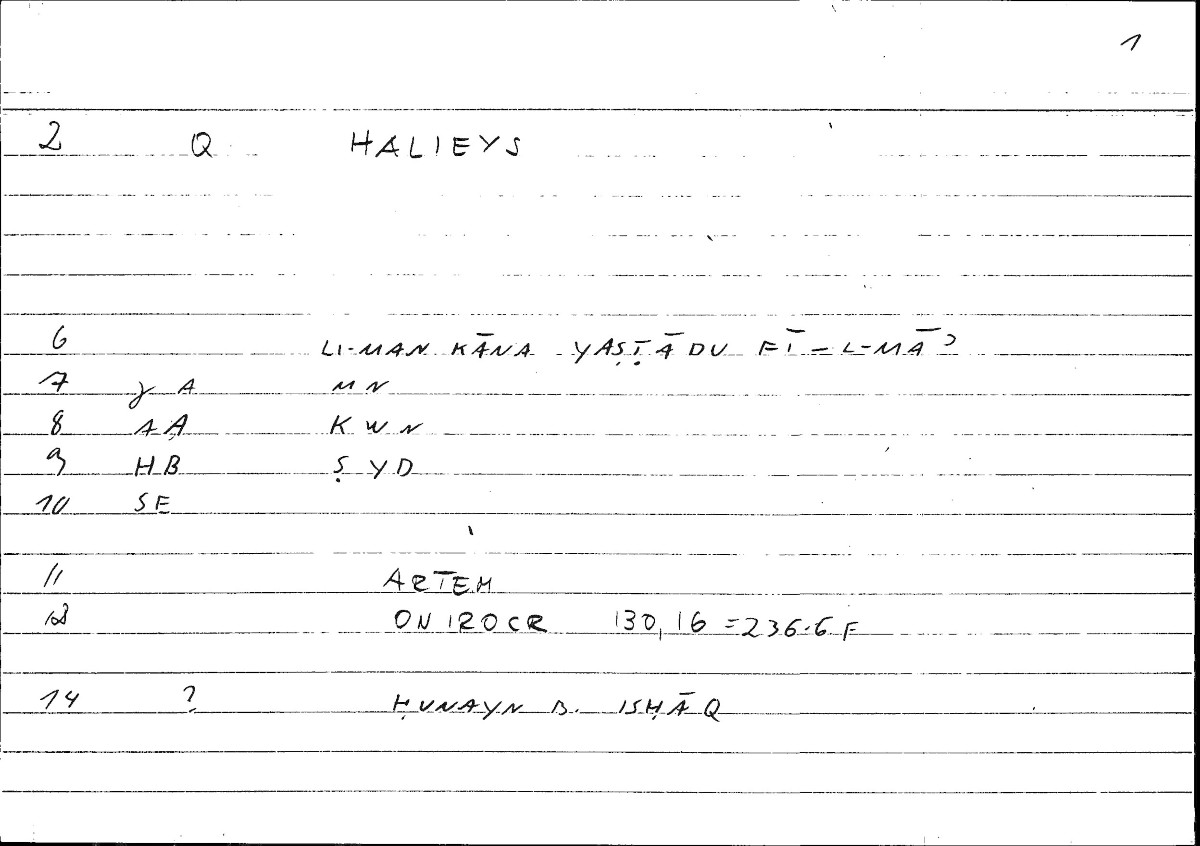 1
2 Q HALIEYS
6 LI-MAN KĀNA YAṢṬĀDU FĪ-L-MĀʾ
7 A MN
8 AA KWN
9 HB ṢYD
10 SE
11 ARTEM
12 ONIROCR 130,16 = 236.6 F
14 ? ḤUNAYN B. ISḤĀQ